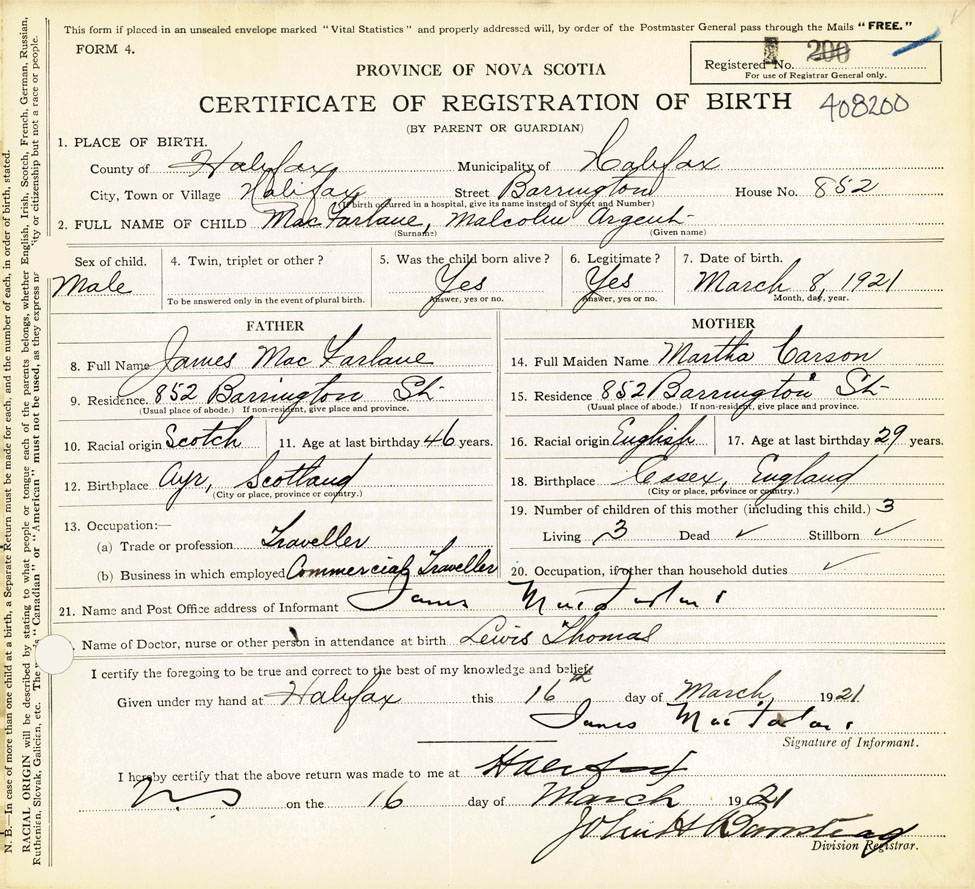 This form if placed in an unsealed envelope marked "Vital Statistics" and properly addressed will, by order of the Postmaster General pass through the Mails "FREE."
FORM 4.
Registered No. 200
For use of Registrar General only.
PROVINCE OF NOVA SCOTIA
CERTIFICATE OF REGISTRATION OF BIRTH 408200
(BY PARENT OR GUARDIAN)
1. PLACE OF BIRTH.
County of Halifax Municipality of Halifax
City, Town or Village Halifax Street Barrington House No. 852
(If birth occurred in a hospital, give its name instead of Street and Number)
2. FULL NAME OF CHILD MacFarlane, Malcolm Argent
(Surname) (Given name)
Sex of child. Male
4. Twin, triplet or other?
To be answered only in the event of plural birth.
5. Was the child born alive? Yes
Answer, yes or no.
6. Legitimate? Yes
Answer, yes or no.
7. Date of birth. March 8, 1921
Month, day, year.
FATHER
8. Full Name James MacFarlane
9. Residence. 852 Barrington St
(Usual place of abode.) If non-resident, give place and province.
10. Racial origin Scotch 11. Age at last birthday 46 years.
12. Birthplace Ayr, Scotland
(City or place, province or country.)
13. Occupation:—
(a) Trade or profession Traveller
(b) Business in which employed Commercial Traveller
MOTHER
14. Full Maiden Name Martha Carson
15. Residence 852 Barrington St
(Usual place of abode.) If non-resident, give place and province.
16. Racial origin English 17. Age at last birthday 29 years.
18. Birthplace Essex, England
(City or place, province or country.)
19. Number of children of this mother (including this child.) 3
Living 3 Dead ✓ Stillborn ✓
20. Occupation, if other than household duties ✓
21. Name and Post Office address of Informant James MacFarlane
Name of Doctor, nurse or other person in attendance at birth Lewis Thomas
I certify the foregoing to be true and correct to the best of my knowledge and belief.
Given under my hand at Halifax this 16th day of March 1921
James MacFarlane
Signature of Informant.
I hereby certify that the above return was made to me at Halifax
N.S. on the 16 day of March 1921
John H Barnstead
Division Registrar.
N. B.—In case of more than one child at a birth, a Separate Return must be made for each, and the number of each, in order of birth, stated.
RACIAL ORIGIN will be described by stating to what people or tongue each of the parents belongs, whether English, Irish, Scotch, French, German, Russian,
Ruthenian, Slovak, Galician, etc. The "Canadian" or "American" must not be used, as they express citizenship but not a race or people.